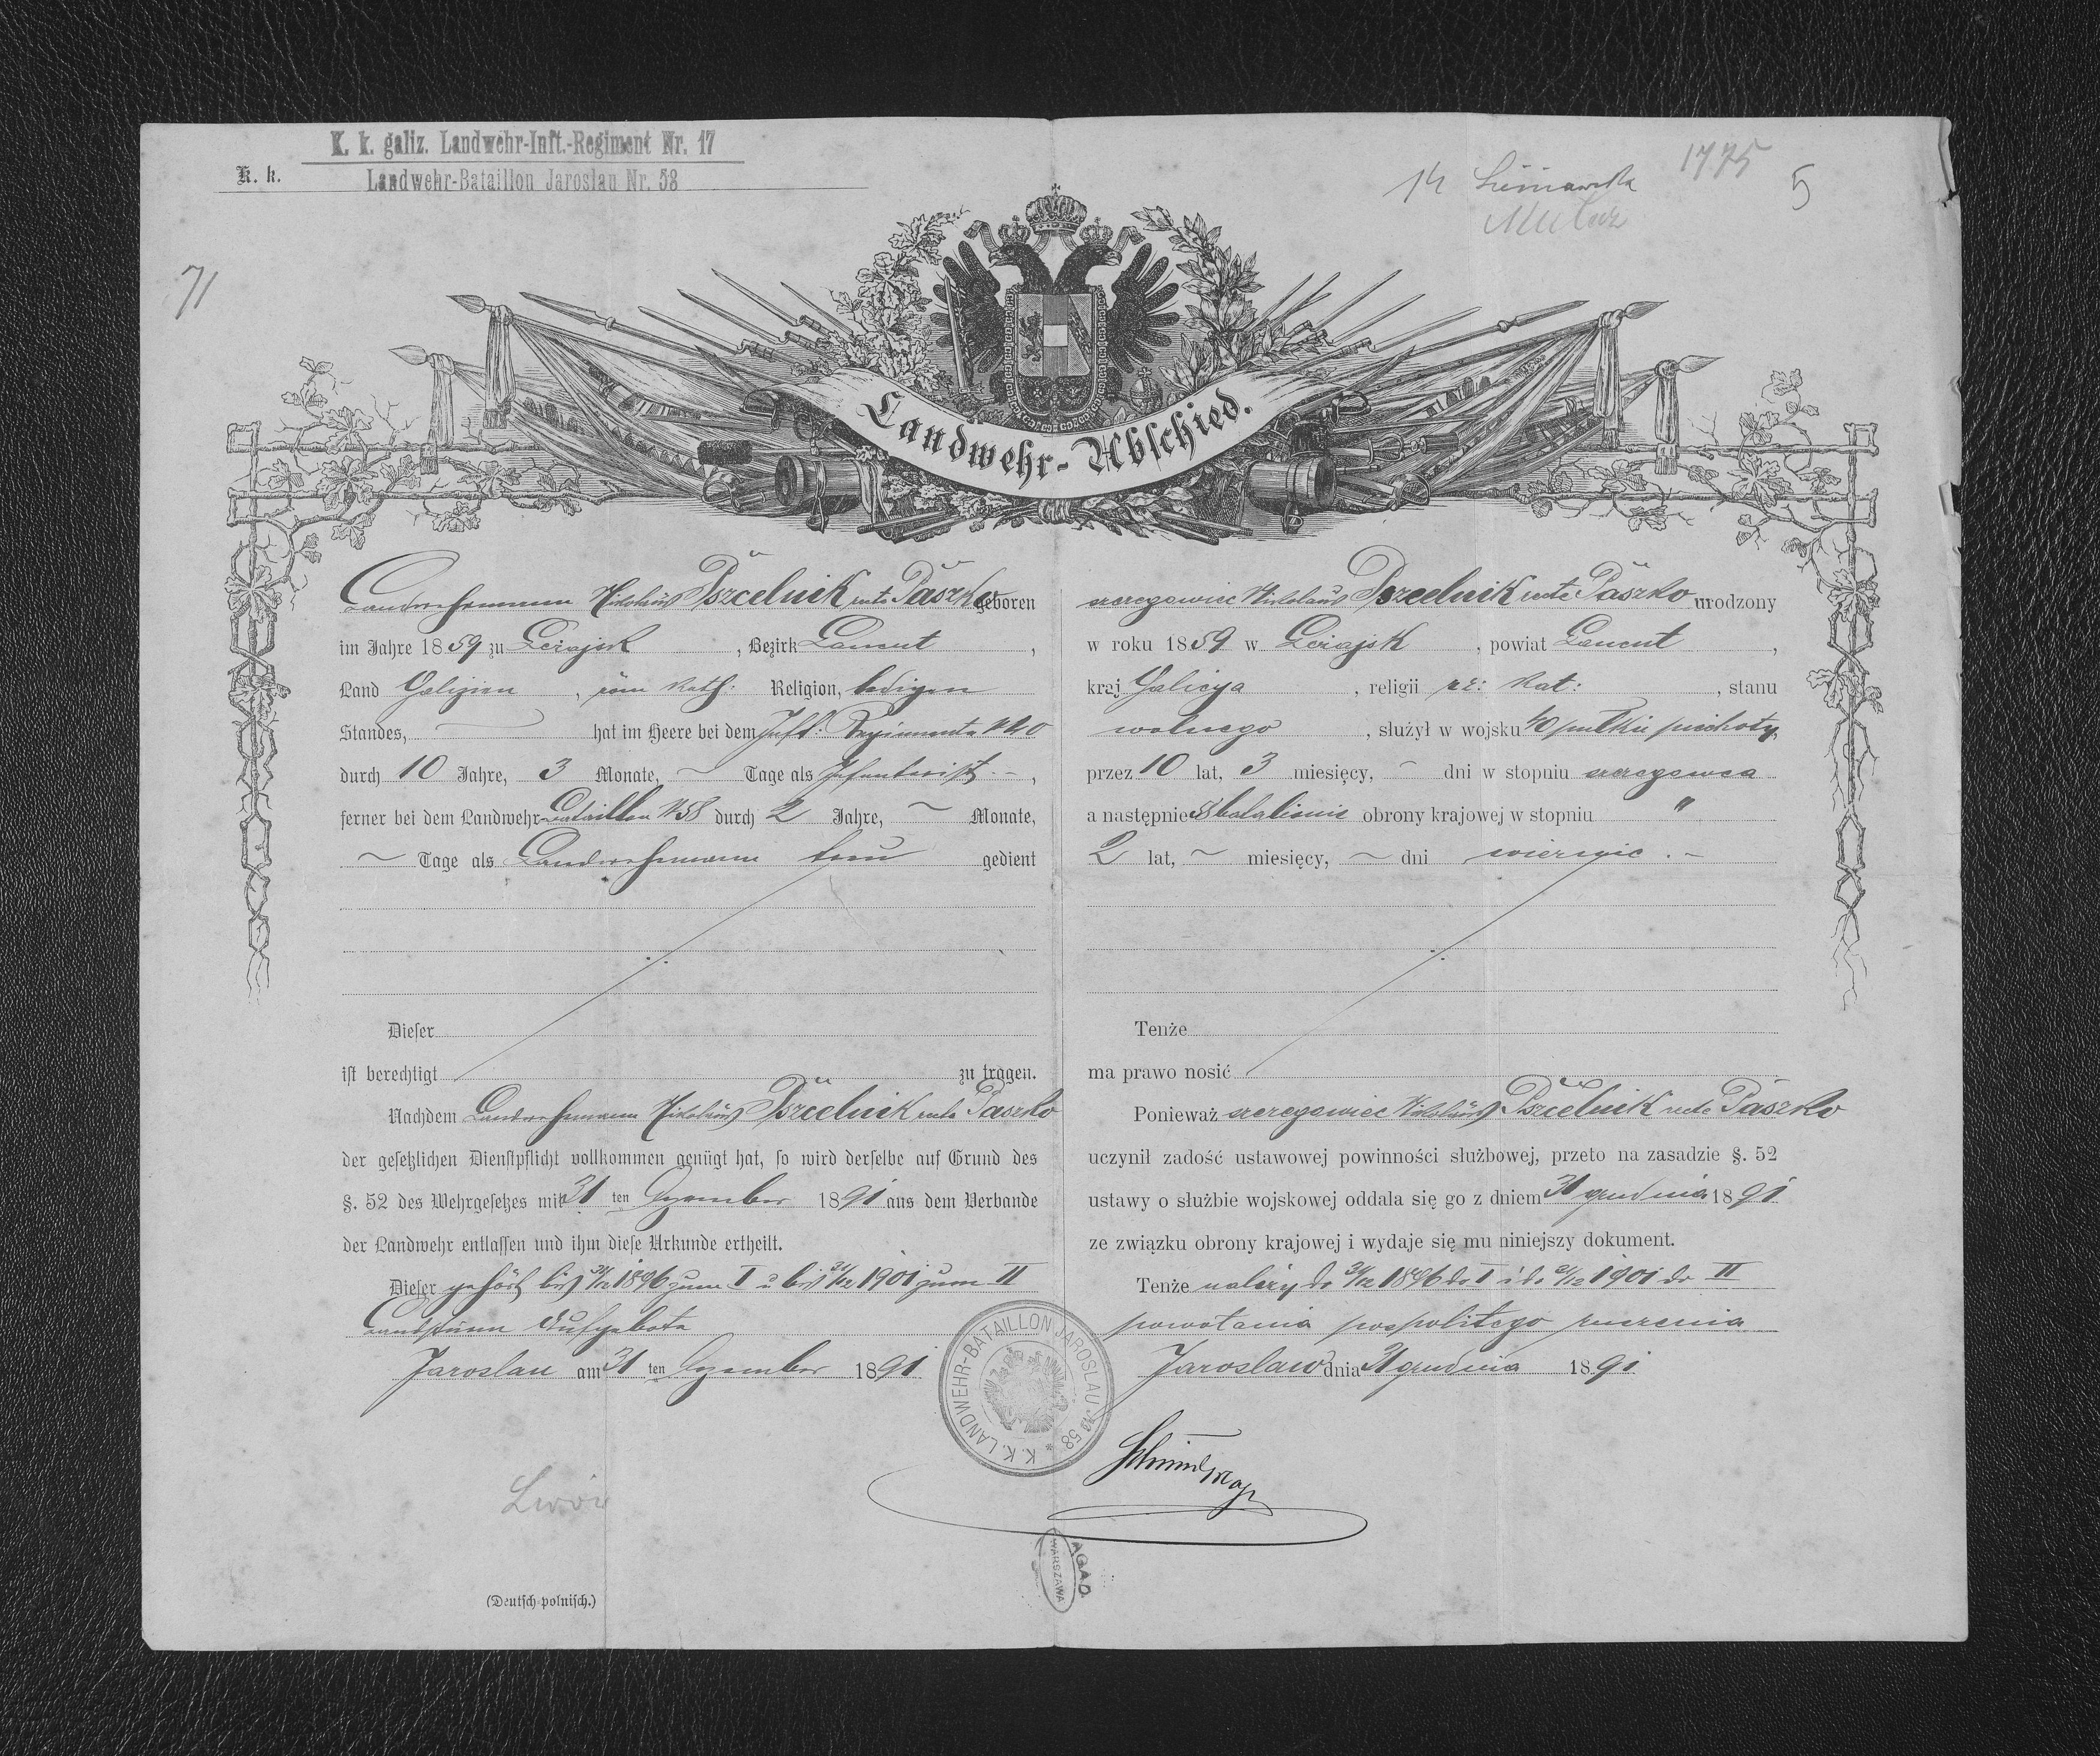 K. k. galiz. Landwehr-Inft.-Regiment Nr. 17
K. k.
Landwehr-Bataillon Jaroslau Nr. 58
14
1775
5
71
Landwehr-Abschied.
Landwehrmann Nikolaus Pszczelnik recte Paszko geboren
im Jahre 1859 zu Leżajsk, Bezirk Lancut,
Land Galizien, röm kath: Religion, ledigen
Standes, hat im Heere bei dem Inft: Regimente N 40
durch 10 Jahre, 3 Monate, — Tage als Infanterist,
ferner bei dem Landwehr-Bataillon N 58 durch 2 Jahre, — Monate,
— Tage als Landwehrmann treu gedient
Dieser
ist berechtigt zu tragen.
Nachdem Landwehrmann Nikolaus Pszczelnik recte Paszko
der gesetzlichen Dienstpflicht vollkommen genügt hat, so wird derselbe auf Grund des
§. 52 des Wehrgesetzes mit 31 ten Dezember 1891 aus dem Verbande
der Landwehr entlassen und ihm diese Urkunde ertheilt.
Dieser gehört bis 31/12 1896 zum I u bis 31/12 1901 zum II
Landsturm Aufgebote
Jaroslau am 31 ten Dezember 1891
szeregowiec Nikolaus Pszczelnik recte Paszko urodzony
w roku 1859 w Leżajsk, powiat Lancut,
kraj Galicya, religii rz: kat:, stanu
wolnego, służył w wojsku 40 pułku piechoty
przez 10 lat, 3 miesięcy, — dni w stopniu szeregowca
a następnie 58 batalionie obrony krajowej w stopniu "
2 lat, — miesięcy, — dni wiernie . —
Tenże
ma prawo nosić
Ponieważ szeregowiec Nikolaus Pszczelnik recte Paszko
uczynił zadość ustawowej powinności służbowej, przeto na zasadzie §. 52
ustawy o służbie wojskowej oddala się go z dniem 31 grudnia 1891
ze związku obrony krajowej i wydaje się mu niniejszy dokument.
Tenże należy do 31/12 1896 do I i do 31/12 1901 do II
powołania pospolitego ruszenia
Jarosław dnia 31 grudnia 1891
K. K. LANDWEHR-BATAILLON JAROSLAU № 58 *
Lwów
AGAD
WARSZAWA
(Deutsch-polnisch.)